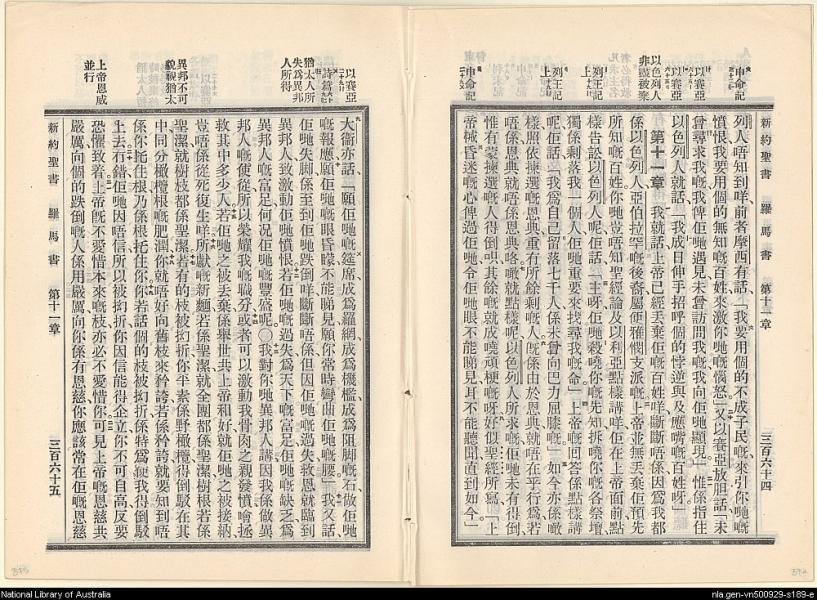 新約聖書 羅馬書 第十一章 三百六十四
申命記
以賽亞
以賽亞
以色列人
非盡被棄
列王記上
列王記上
申命記
列人唔知到咩前者摩西有話「我要用個的不成子民嘅來引你哋嘅
憤恨我要用個的無知嘅百姓來激你哋嘅惱怒」又以賽亞放胆話「未
曾尋求我嘅我俾佢哋遇見未曾訪問我嘅我向佢哋顯現」惟係指住
以色列人就話「我成日伸手招呼個的悖逆與及應嘴嘅百姓呀」
第十一章 我就話上帝已經丢棄佢嘅百姓咩斷斷唔係因爲我都
係以色列人亞伯拉罕嘅後裔屬便雅憫支派嘅上帝並無丢棄佢預先
所知嘅百姓你哋豈唔知聖經論及以利亞點樣講咩佢在上帝面前點
樣告訟以色列人呢佢話「主呀佢哋殺嘵你嘅先知拆嘵你嘅各祭壇
獨係剩落我一個人佢哋重要來找尋我嘅命」上帝嘅回答係點樣講
呢佢話「我爲自己留落七千人係未曾向巴力屈膝嘅」如今亦係噉
樣照依揀選嘅恩典重有所餘剩嘅人旣係由於恩典就唔在乎行爲若
唔係恩典就唔係恩典咯噉就點樣呢以色列人所求嘅佢哋未有得倒
惟有蒙揀選嘅人得倒唄其餘嘅就成嘵頑梗嘅呀好似聖經所寫「上
帝械昏迷嘅心俾過佢哋令佢哋眼不能睇見耳不能聽聞直到如今」
以賽亞
詩篇
猶太人所
失爲異邦
人所得
異邦不可
藐視猶太
上帝恩威
並行
大衞亦話「願佢哋嘅筵席成爲羅網成爲機檻成爲阻脚嘅石做佢哋
嘅報應願佢哋嘅眼昏矇不能睇見願你常時彎曲佢哋嘅腰」我又話
佢哋失脚係至到佢哋跌倒咩斷斷唔係但因佢哋嘅過失救恩就臨到
異邦人致激動佢哋憤恨若佢哋嘅過失爲天下嘅富足佢哋嘅缺乏爲
異邦人嘅富足何况佢哋嘅豐盛呢○我對你哋異邦人講因我係做異
邦人嘅使從所以榮耀我嘅職分或者可以激動我骨肉之親發憤噲拯
救其中多少人若佢哋之被丢棄係舉世共上帝和好就佢哋之被接納
豈唔係從死復生咩所獻嘅新麵若係聖潔就全團都係聖潔樹根若係
聖潔就樹枝都係聖潔若有的枝被抝折你平素係野橄欖得倒駁在其
中同分橄欖根嘅肥潤你就唔好向舊枝來矜誇若係矜誇就要知到唔
係你托住根乃係根托住你你若話個的枝被抝折係特爲𢬿我得倒駁
上去冇錯佢哋因唔信所以被抝折你因信能得企立你不可自高反要
恐懼致着上帝旣不愛惜本來嘅枝亦必不愛惜你可見上帝嘅恩慈共
嚴厲向個的跌倒嘅人係用嚴厲向你係有恩慈你應該常在佢嘅恩慈
新約聖書 羅馬書 第十一章 三百六十五
National Library of Australia
nla.gen-vn500929-s189-e